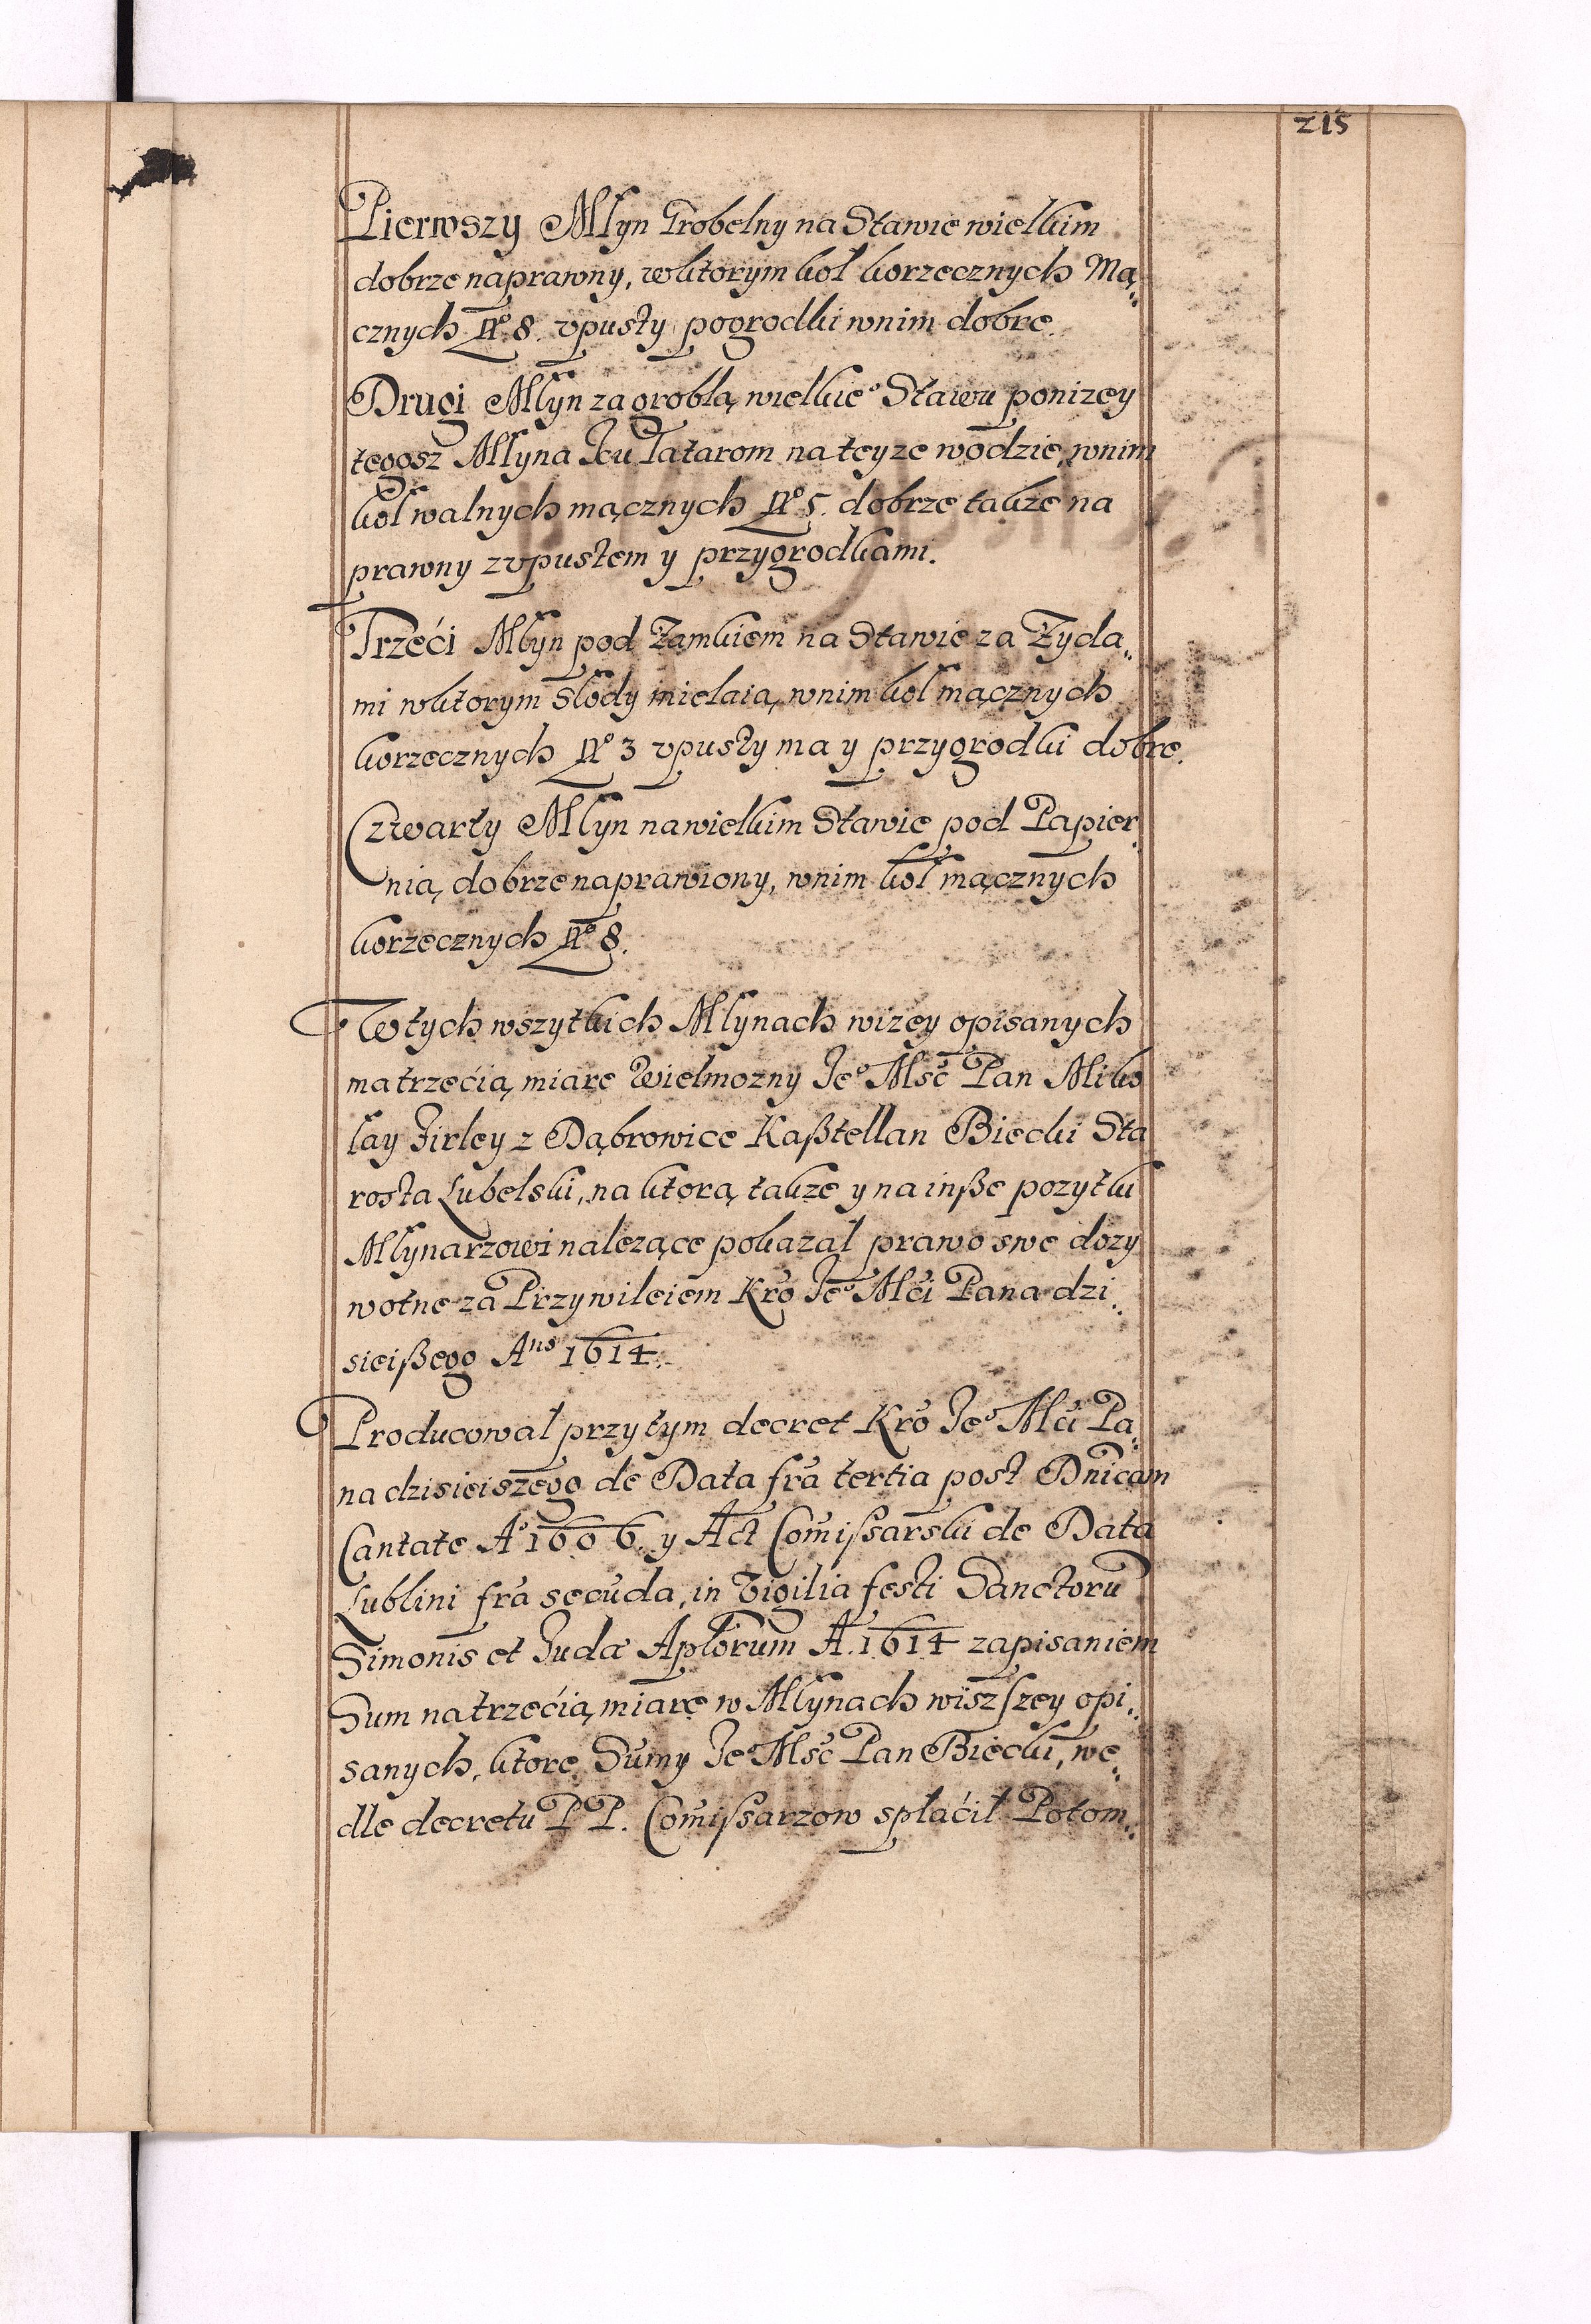 215
Pierwszy Młyn Grobelny na Stawie wielkim
dobrze naprawny, wktorym koł korzecznych Mą„
cznych No 8. vpusty pogrodki wnim dobre.
Drugi Młyn za groblą wielkieo Stawu ponizey
tegosz Młyna ku Tatarom na teyze wodzie, wnim
koł walnych mącznych No 5. dobrze takze na
prawny zvpustem y przygrodkami.
Trzeći Młyn pod Zamkiem na Stawie za Zyda„
mi wktorym słody mielaią, wnim koł mącznych
korzecznych No 3 vpusty ma y przygrodki dobre.
Czwarty Młyn nawielkim Stawie pod Papier„
nią, dobrze naprawiony, wnim koł mącznych
korzecznych No 8.
Wtych wszytkich Młynach wizey opisanych
ma trzećią miarę Wielmozny Jeo Mść Pan Miko
łay Firley z Dąbrowice Kaßtellan Biecki Sta
rosta Lubelski, na ktorą takze y na inße pozytki
Młynarzowi nalezące pokazał prawo swe dozy
wotne za Przywileiem Kro Jeo Mći Pana dzi„
sieißego Ano 1614.
Producował przytym decret Kro Jeo Mći Pa„
na dzisieiszego de Data fra tertia post Dnicam
Cantate Ao 1606. y Act Comißarski de Data
Lublini fra secuda, in Vigilia festi Sanctoru
Simonis et Judæ Aplorum A. 1614 zapisaniem
Sum natrzećią miarę w Młynach wiszszey opi„
sanych, ktore Sumy Jeo Mść Pan Biecki, we„
dle decretu PP. Comißarzow spłaćił Potom„